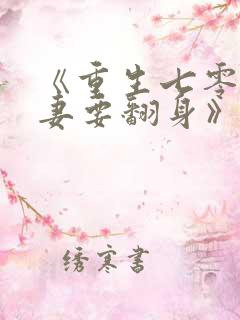 《重生七零
妻要翻身》
绣寒书